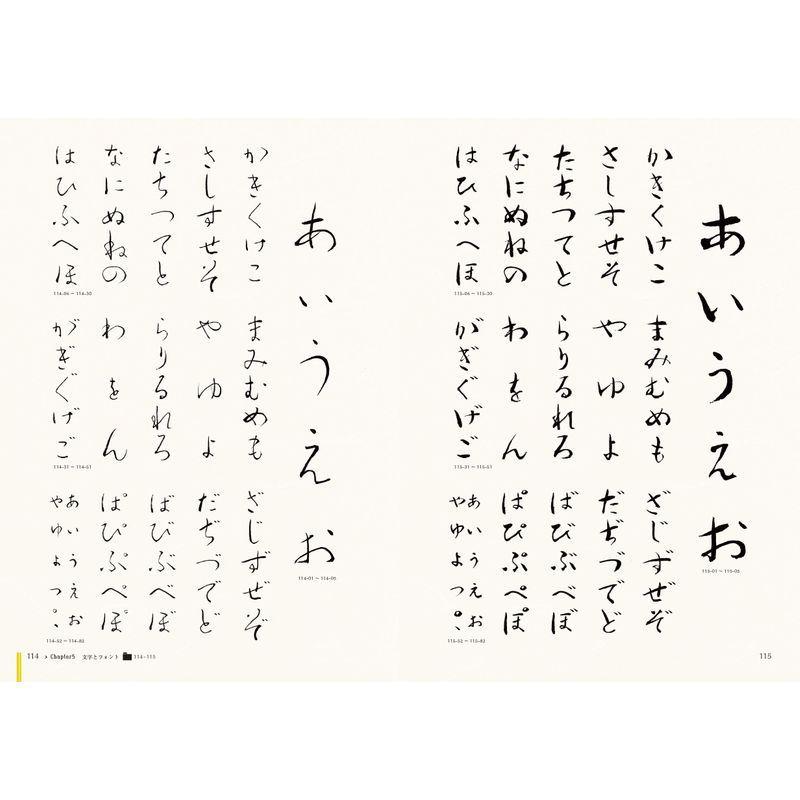 あいうえお
114-01 ~ 114-05
かきくけこ
さしすせそ
たちつてと
なにぬねの
はひふへほ
114-06 ~ 114-30
まみむめも
やゆよ
らりるれろ
わをん
がぎぐげご
114-31 ~ 114-51
ざじずぜぞ
だぢづでど
ばびぶべぼ
ぱぴぷぺぽ
あいうえお
やゆよつ。、
114-52 ~ 114-82
114 > Chapter5 文字とフォント 114-115
あいうえお
115-01 ~ 115-05
かきくけこ
さしすせそ
たちつてと
なにぬねの
はひふへほ
115-06 ~ 115-30
まみむめも
やゆよ
らりるれろ
わをん
がぎぐげご
115-31 ~ 115-51
ざじずぜぞ
だぢづでど
ばびぶべぼ
ぱぴぷぺぽ
あいうえお
やゆよつ。、
115-52 ~ 115-82
115